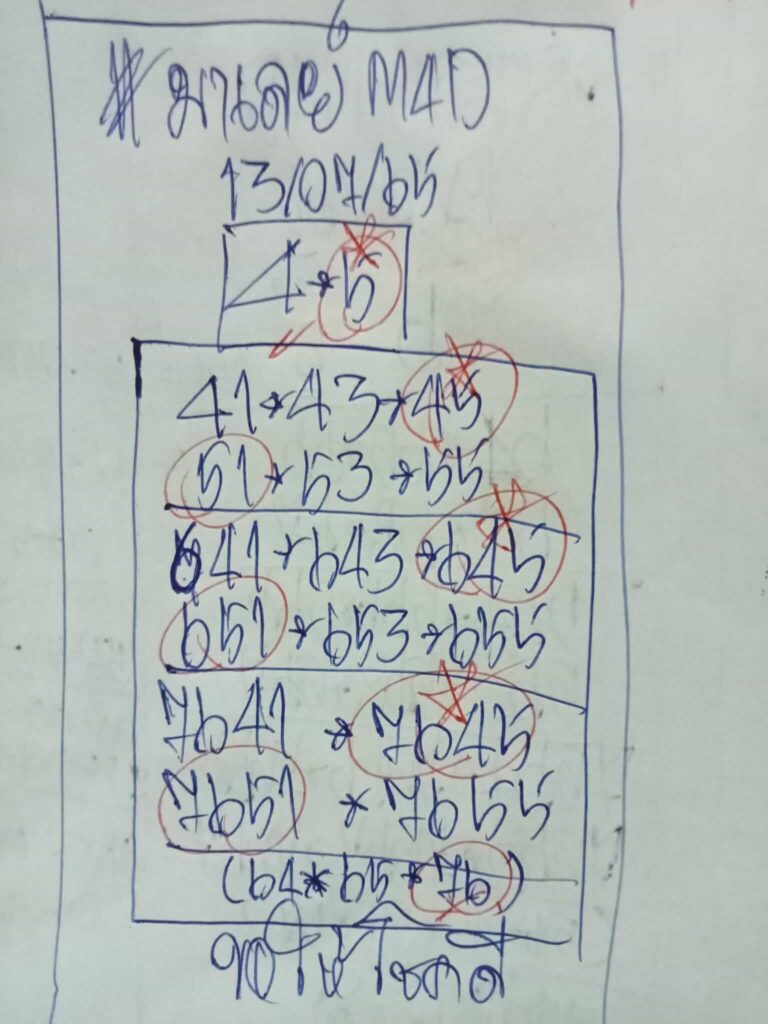 # มาเลย์ M4D
13/07/65
4*5
41*43*45
51*53*55
641*643*645
651*653*655
7641 * 7645
7651 * 7655
(64*65*76)
ขอให้โชคดี